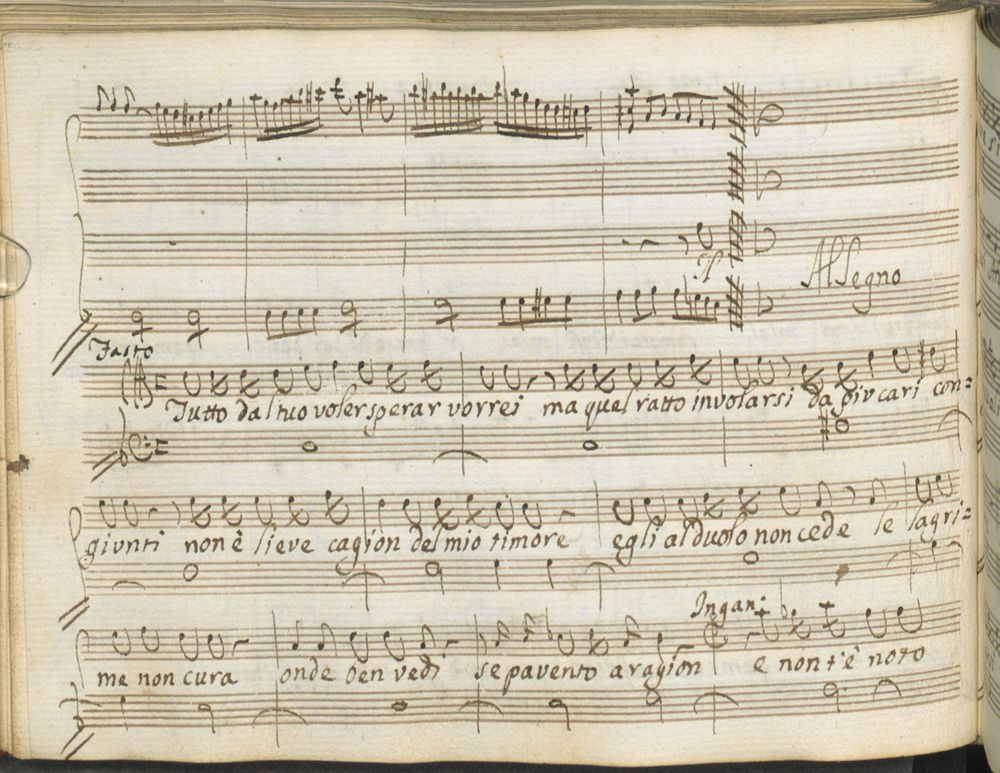 Il
Al Segno
Fasto
Tutto dal tuo voler sperar vorrei ma quel ratto involarsi da giv cari con=
givnti non è lieve cagion del mio timore egli al duolo non cede le lagri=
Ingan:
me non cura onde ben vedi se pavento a ragion e non t'è noto